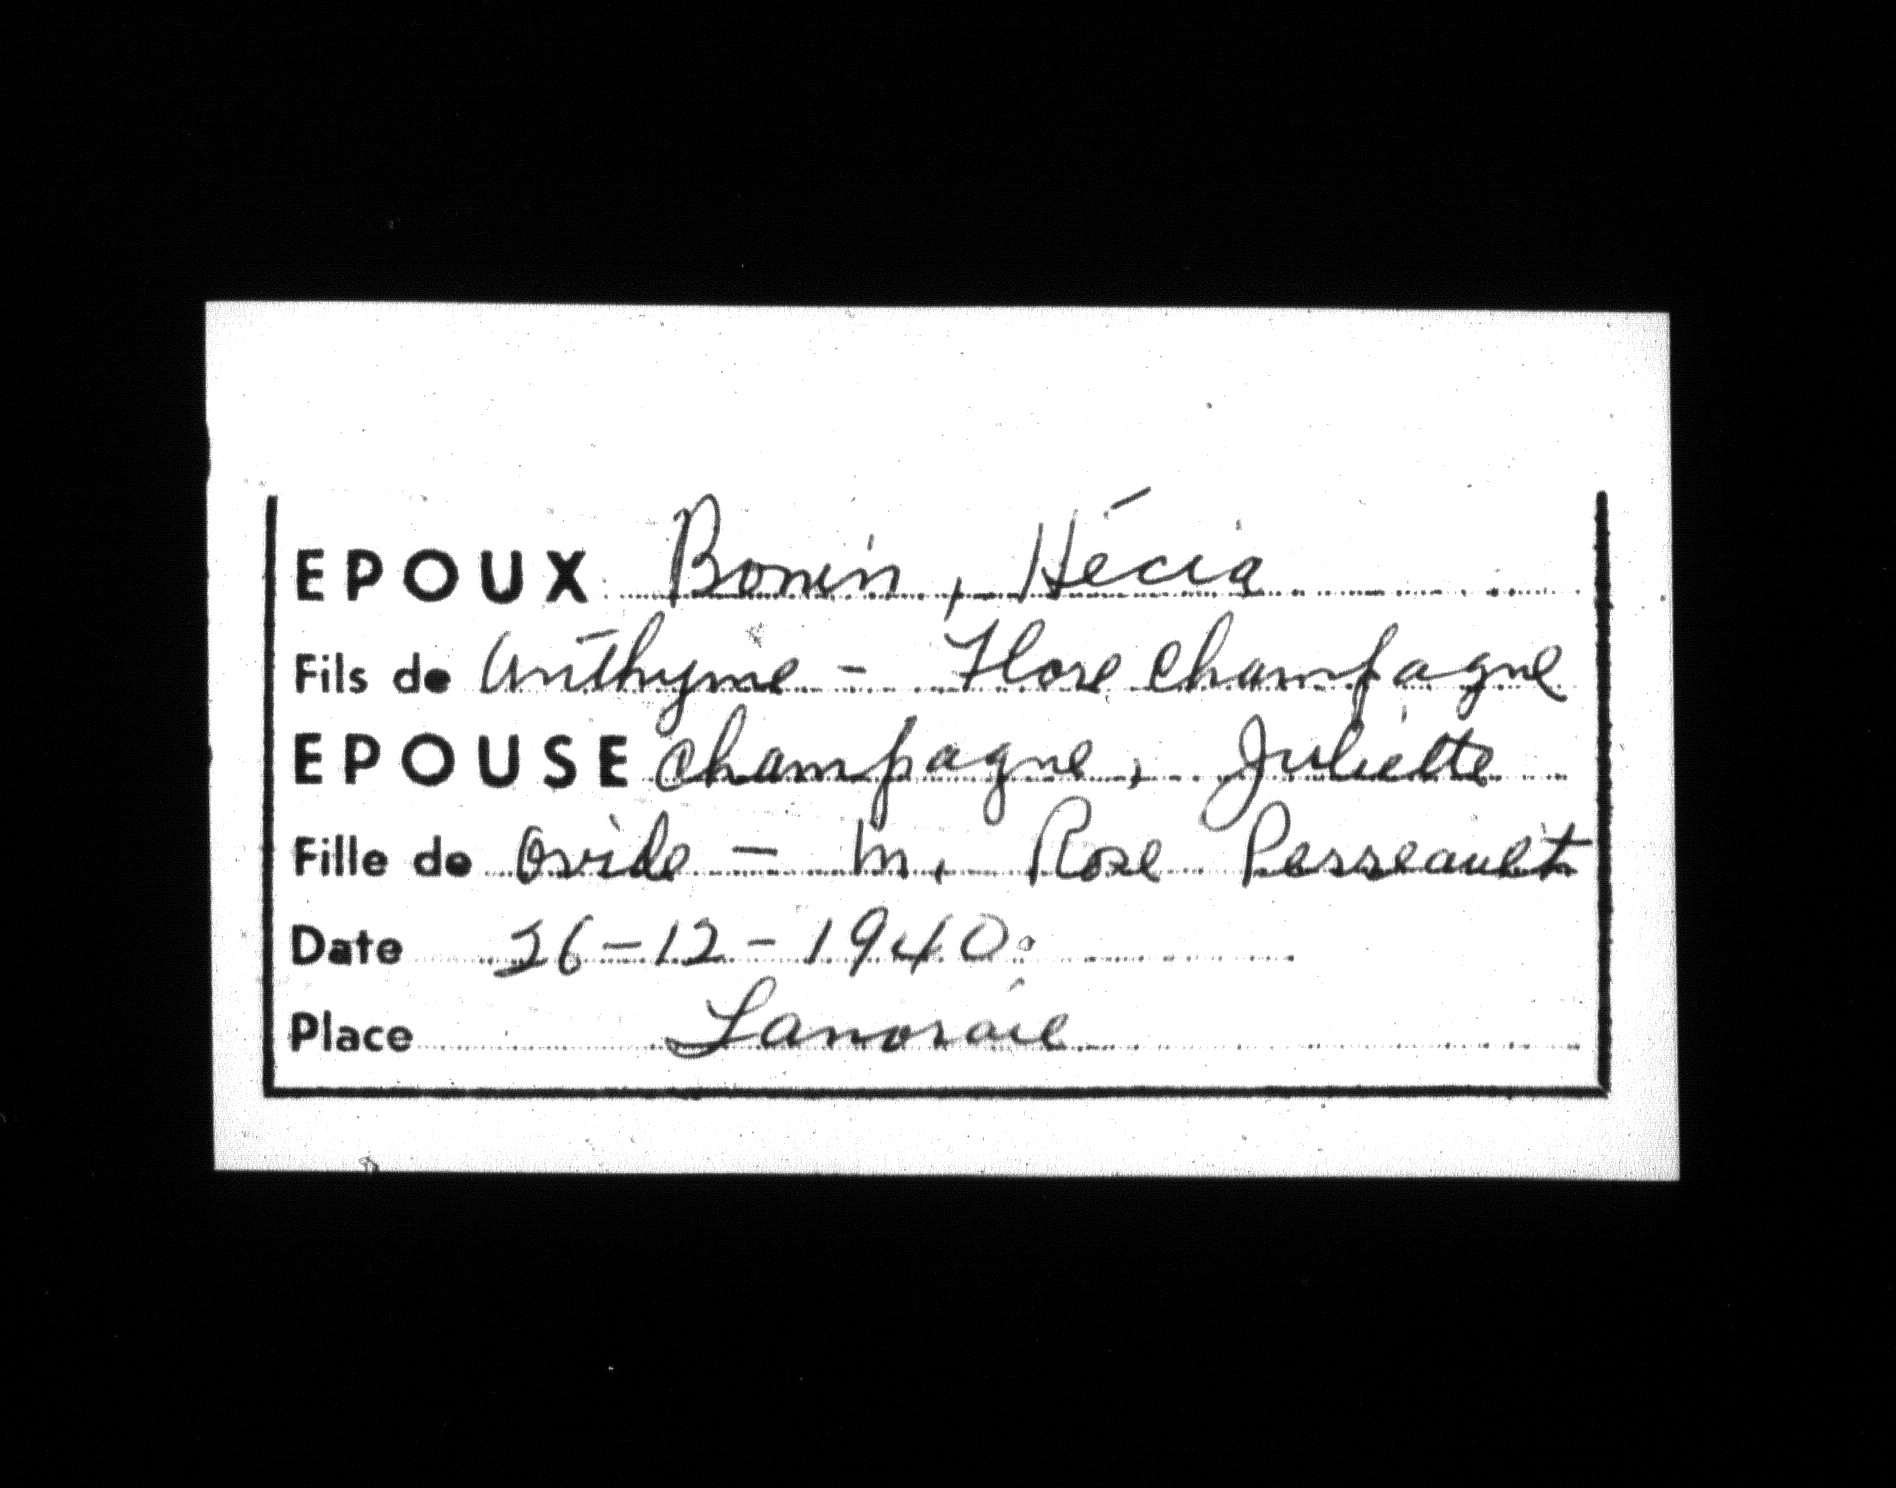 EPOUX Bonin, Hécia
Fils de Anthyme - Flore Champagne
EPOUSE Champagne, Juliette
Fille de Ovide - M. Rose Perreault
Date 26-12-1940
Place Lanoraie